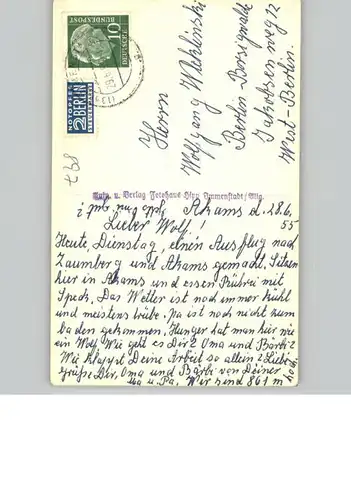 DEUTSCHE
BUNDESPOST
10
NOTOPFER
2 BERLIN
STEUERMARKE
Herrn
Wolfgang
Berlin-Borsigwalde
Jakobsenweg 12
West-Berlin.
u. Verlag Fotohaus Immenstadt/Allg.
Akams d. 28.6.
55
Lieber Wolf!
Heute, Dienstag, einen Ausflug nach
Zaumberg und Akams gemacht. Sitzen
hier in Akams und essen Rührei mit
Speck. Das Wetter ist noch immer kühl
und meistens trübe. Pa ist noch nicht zum
baden gekommen. Hunger hat man hier wie
ein Wolf. Wie geht es Dir? Oma und Bärbi?
Wie klappt Deine Arbeit so allein? Liebe
Grüße Dir, Oma und Bärbi von Deiner
u. Pa. Wir sind 861 m
hoch.